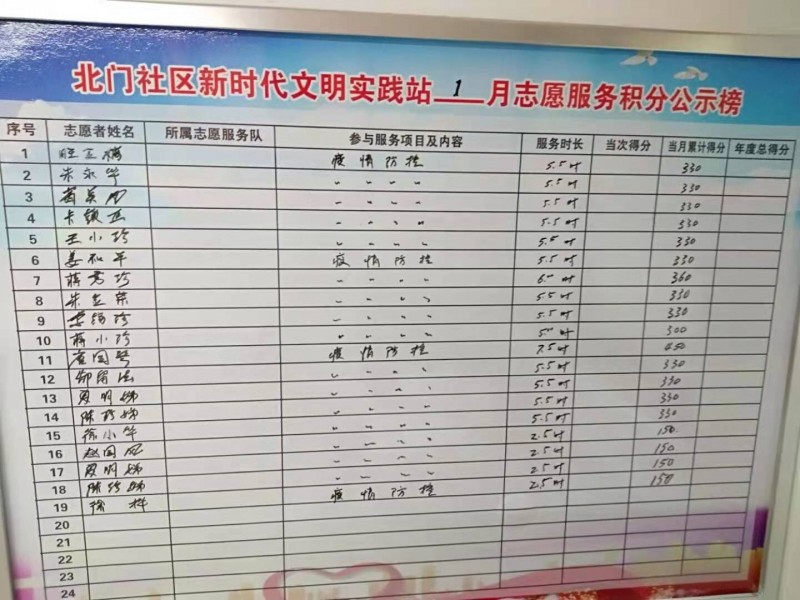 北门社区新时代文明实践站 1 月志愿服务积分公示榜
序号 志愿者姓名 所属志愿服务队 参与服务项目及内容 服务时长 当次得分 当月累计得分 年度总得分
1 疫情防控 5.5时 330
2 朱永华 〃 〃 〃 〃 5.5时 330
3 〃 〃 〃 〃 5.5时 330
4 〃 〃 〃 〃 5.5时 330
5 王小珍 〃 〃 〃 〃 5.5时 330
6 姜和平 疫情防控 5.5时 330
7 蒋秀珍 〃 〃 〃 〃 6.0时 360
8 〃 〃 〃 〃 5.5时 330
9 〃 〃 〃 〃 5.5时 330
10 蒋小珍 〃 〃 〃 〃 5.0时 300
11 疫情防控 7.5时 450
12 〃 〃 〃 〃 5.5时 330
13 〃 〃 〃 〃 5.5时 330
14 〃 〃 〃 〃 5.5时 330
15 徐小华 〃 〃 〃 〃 2.5时 150
16 〃 〃 〃 〃 2.5时 150
17 〃 〃 〃 〃 2.5时 150
18 疫情防控 2.5时 150
19
20
21
22
23
24